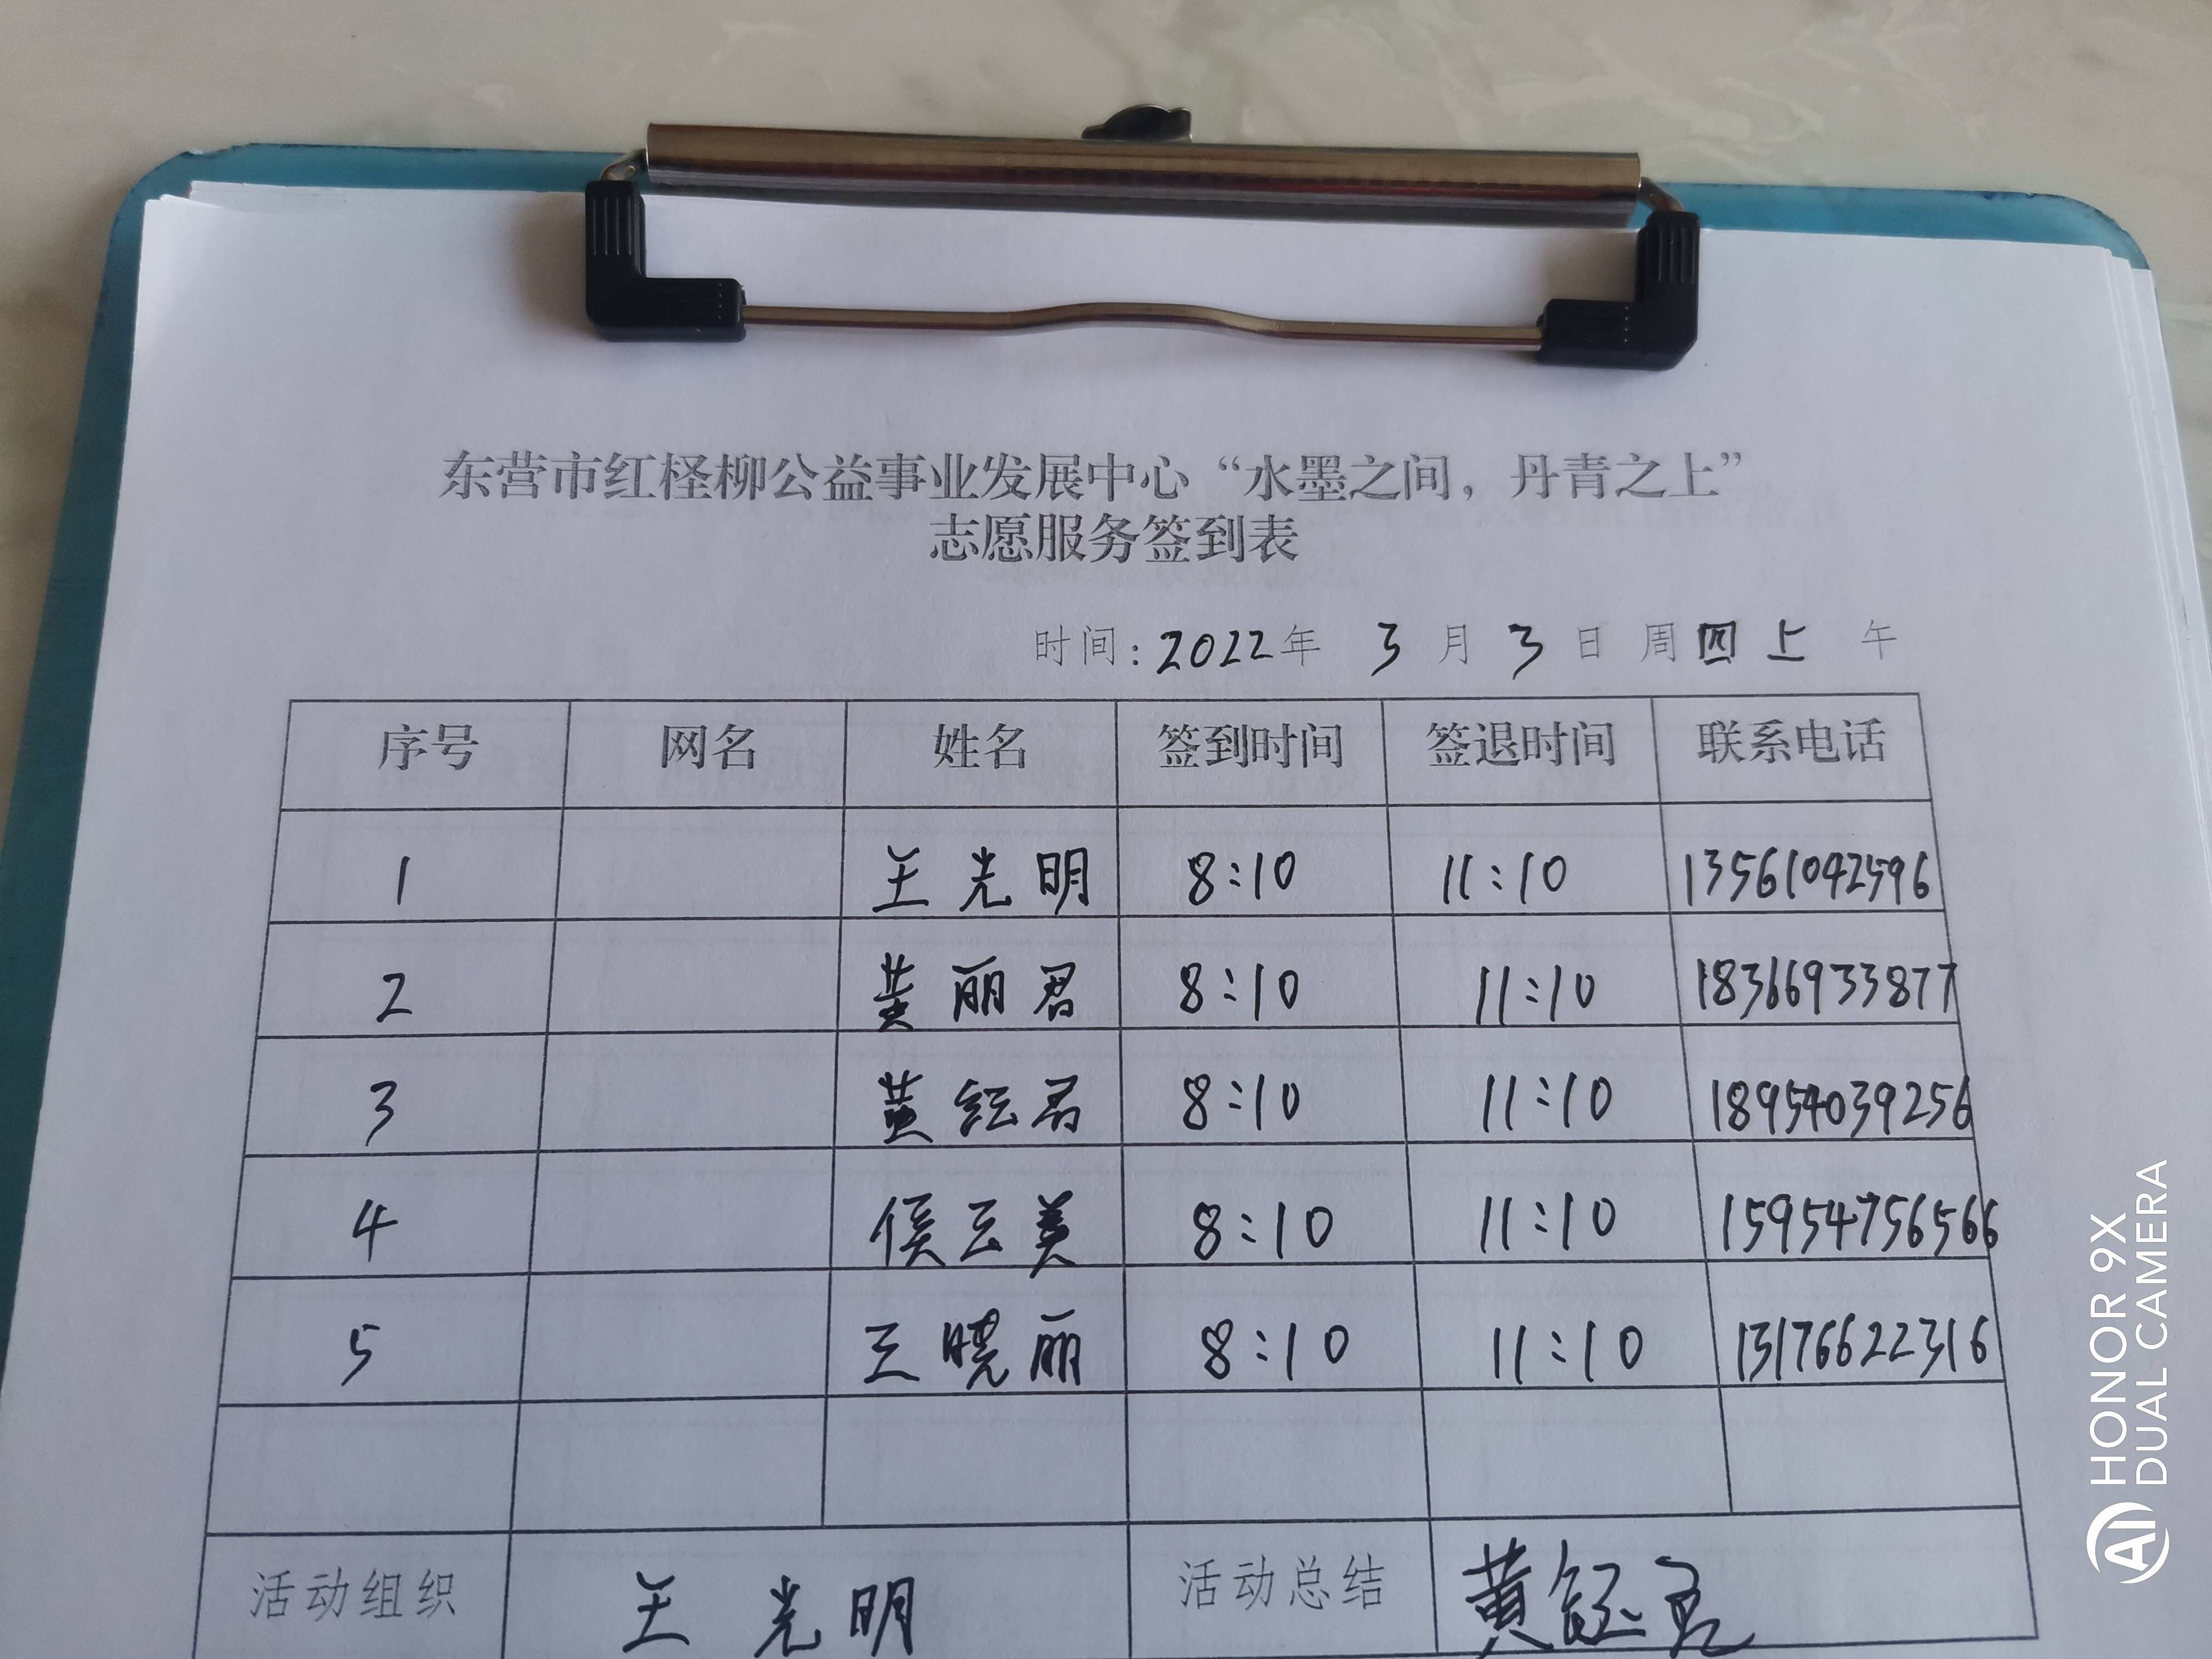 东营市红柽柳公益事业发展中心“水墨之间，丹青之上”
志愿服务签到表
时间：2022年 3 月 3 日 周四上 午
序号 网名 姓名 签到时间 签退时间 联系电话
1 王光明 8:10 11:10 13561042596
2 黄丽君 8:10 11:10 18366933877
3 黄钰君 8:10 11:10 18954039256
4 侯云美 8:10 11:10 15954756566
5 王晓丽 8:10 11:10 13176622316
活动组织 王光明 活动总结 黄钰君
HONOR 9X
DUAL CAMERA
AI